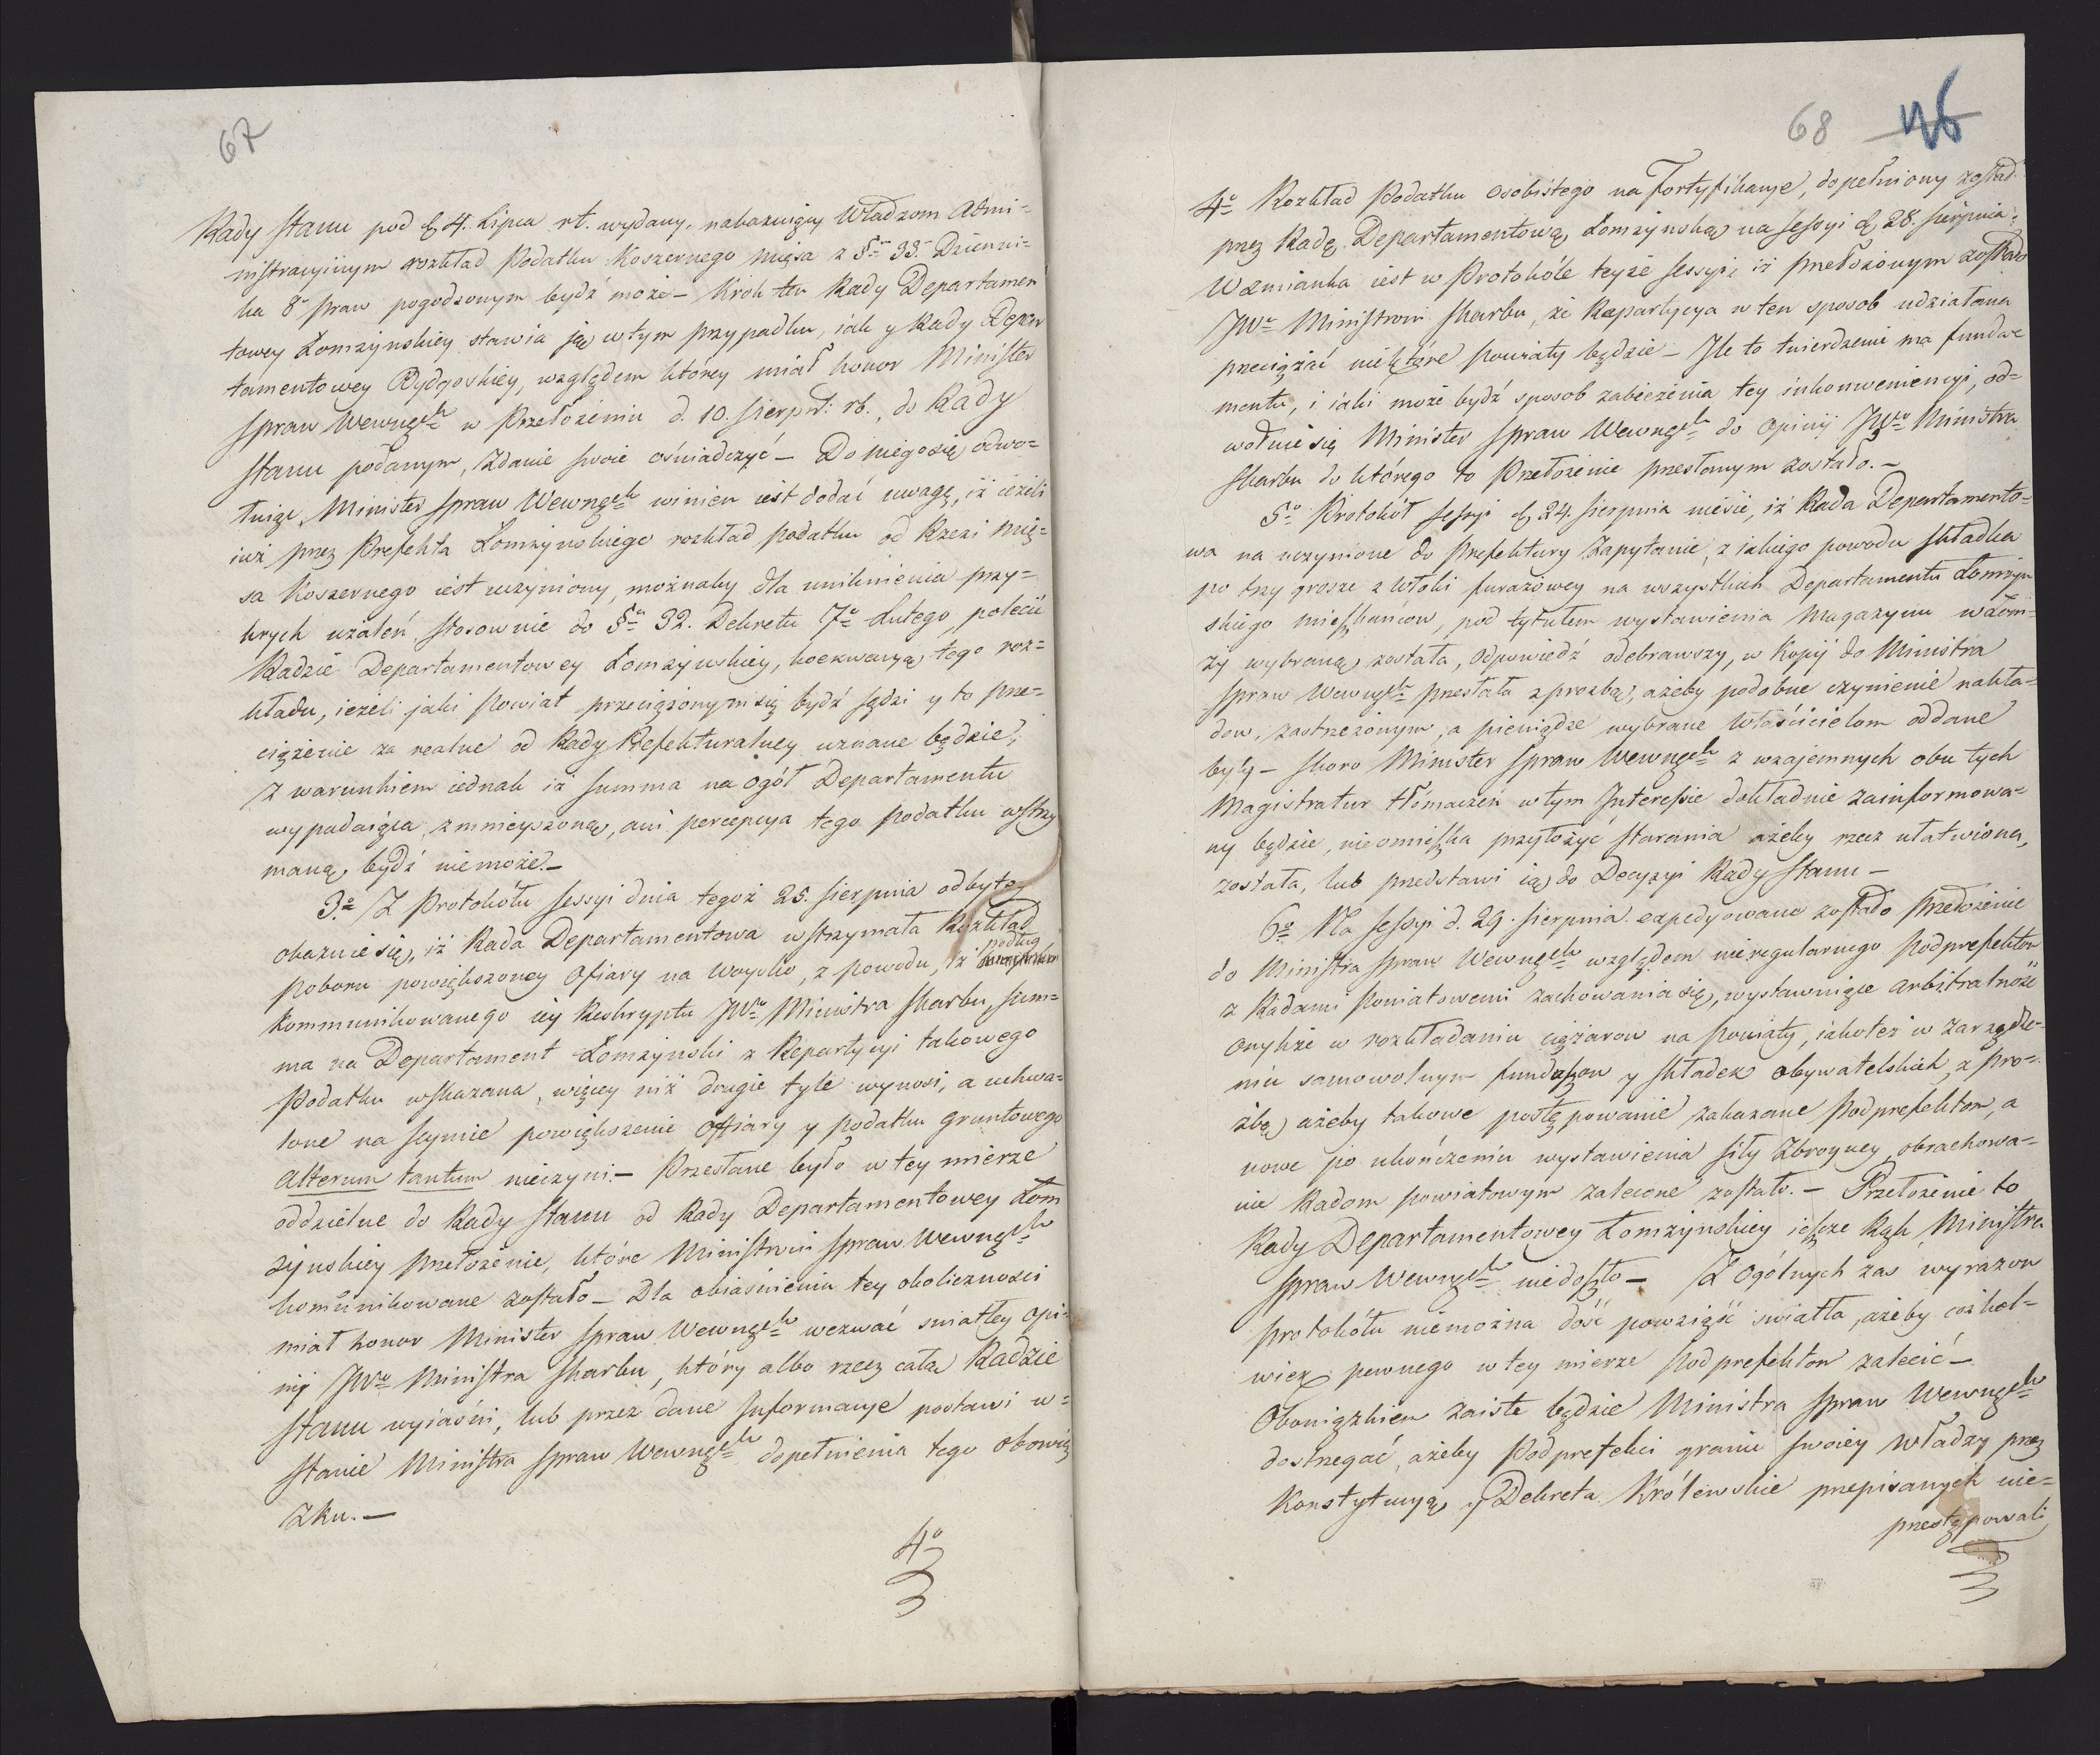 67
Rady Stanu pod d. 4. Lipca rb. wydany, nakazuiący Władzom Admi=
nistracyinym rozkład Podatku Koszernego mięsa z §em 33. Dzienni=
ka 8o praw pogodzonym bydź może – Krok ten Rady Departamen
towey Łomżyńskiey stawia ją w tym przypadku, iak y Rady Depar
tamentowey Bydgoskiey, względem którey miał honor Minister
Spraw Wewnętch w Przełożeniu d. 10. Sierpnia rb., do Rady
Stanu podanym, Zdanie swoie oświadczyć – Do niego się odwo=
łuiąc, Minister Spraw Wewnętch winien iest dodać uwagę, iż ieżeli
iuż przez Prefekta Łomżyńskiego rozkład podatku od Rzezi mię=
sa Koszernego iest uczyniony, możnaby dla uniknienia przy=
krych użaleń stosownie do §u 32. Dekretu 7o Lutego, polecić
Radzie Departamentowey Łomżyńskiey, koekwacyą tego roz=
kładu, ieżeli jaki Powiat przeciążonym się bydź sądzi y to prze=
ciążenie za realne od Rady Prefekturalney uznane będzie,
z warunkiem iednak iż Summa na ogół Departamentu
wypadaiąca, zmnieyszoną, ani percepcya tego Podatku wstrzy
maną bydź nie może. –
3o Z Protokółu Sessyi dnia tegoż 25. Sierpnia odbytey
okazuie się, iż Rada Departamentowa wstrzymała Rozkład
Poboru powiększoney Ofiary na Woysko, z powodu, iż podług
kommunikowanego iey Reskryptu JWo Ministra Skarbu, Sum=
ma na Departament Łomżyński z Repartycyi takowego
Podatku wskazana, więcey niż drugie tyle wynosi, a uchwa=
lone na Seymie powiększenie Offiary y podatku gruntowego
Alterum tantum nieczyni. – Przesłane było w tey mierze
oddzielne do Rady Stanu od Rady Departamentowey Łom
żyńskiey Przełożenie, które Ministrowi Spraw Wewnętch
kommunikowane zostało – Dla obiaśnienia tey okoliczności
miał honor Minister Spraw Wewnętch wezwać światłey Opi=
nij JWo Ministra Skarbu, który albo rzecz całą Radzie
Stanu wyiaśni, lub przez dane Informacye postawi w=
stanie Ministra Spraw Wewnętch dopełnienia tego obowią
zku. –
4o
68 46
4o Rozkład Podatku osobistego na Fortyfikacye, dopełniony został
przez Radę Departamentową Łomżyńską na Sessyi d. 28. Sierpnia.
Wzmianka iest w Protokóle teyże Sessyi, iż Przełożonym zostało
JWu Ministrowi Skarbu, że Repartycya w ten sposob udziałana
przeciążać niektóre Powiaty będzie – Ile to twierdzenie ma funda=
mentu, i iaki może bydź sposob zabieżenia tey inkonweniencyi, od=
wołuie się Minister Spraw Wewnętch do Opinij JWo Ministra
Skarbu do którego to Przełożenie przesłanym zostało. –
5o Protokół Sessyi d. 24. Sierpnia niesie, iż Rada Departamento=
wa na uczynione do Prefektury Zapytanie, z jakiego powodu składka
po trzy grosze z Włoki furażowey na wszystkich Departamentu Łomżyń
skiego mieszkańców, pod tytułem wystawienia Magazynu w Łom=
ży wybraną została, Odpowiedź odebrawszy, w Kopij do Ministra
Spraw Wewnętch przesłała z prozbą, ażeby podobne czynienie nakła=
dow, zastrzeżonym, a pieniądze wybrane Właścicielom oddane
były – Skoro Minister Spraw Wewnętch z wzajemnych obu tych
Magistratur tłómaczeń w tym Interessie dokładnie zainformowa=
ny będzie, nieomieszka przyłożyć starania ażeby rzecz ułatwioną
została, lub przedstawi ią do Decyzyi Rady Stanu –
6o Na Sessyi d. 29. Sierpnia expedyowano zostało Przełożenie
do Ministra Spraw Wewnętch względem nieregularnego Podprefektow
z Radami Powiatowemi zachowania się, wystawuiąc arbitralność
onychże w rozkładaniu ciężarow na Powiaty, iakoteż w zarządze=
niu samowolnym funduszow y składek obywatelskich, z pro=
źbą ażeby takowe postępowanie zakazane Podprefektom, a
nowe po ukończeniu wystawienia siły Zbroyney obrachowa=
nie Radom powiatowym zalecone zostało. – Przełożenie to
Rady Departamentowey Łomżyńskiey ieszcze Rąk Ministra
Spraw Wewnętch nie doszło – Z Ogólnych zaś wyrazow
Protokółu nie można dość powziąść światła, ażeby cożkol=
wiek pewnego w tey mierze Podprefektom zalecić –
Obowiązkiem zaiste będzie Ministra Spraw Wewnętch
dostrzegać, ażeby Podprefekci granic swoiey Władzy przez
Konstytucyą y Dekreta Królewskie przepisanych nie=
przestępowali